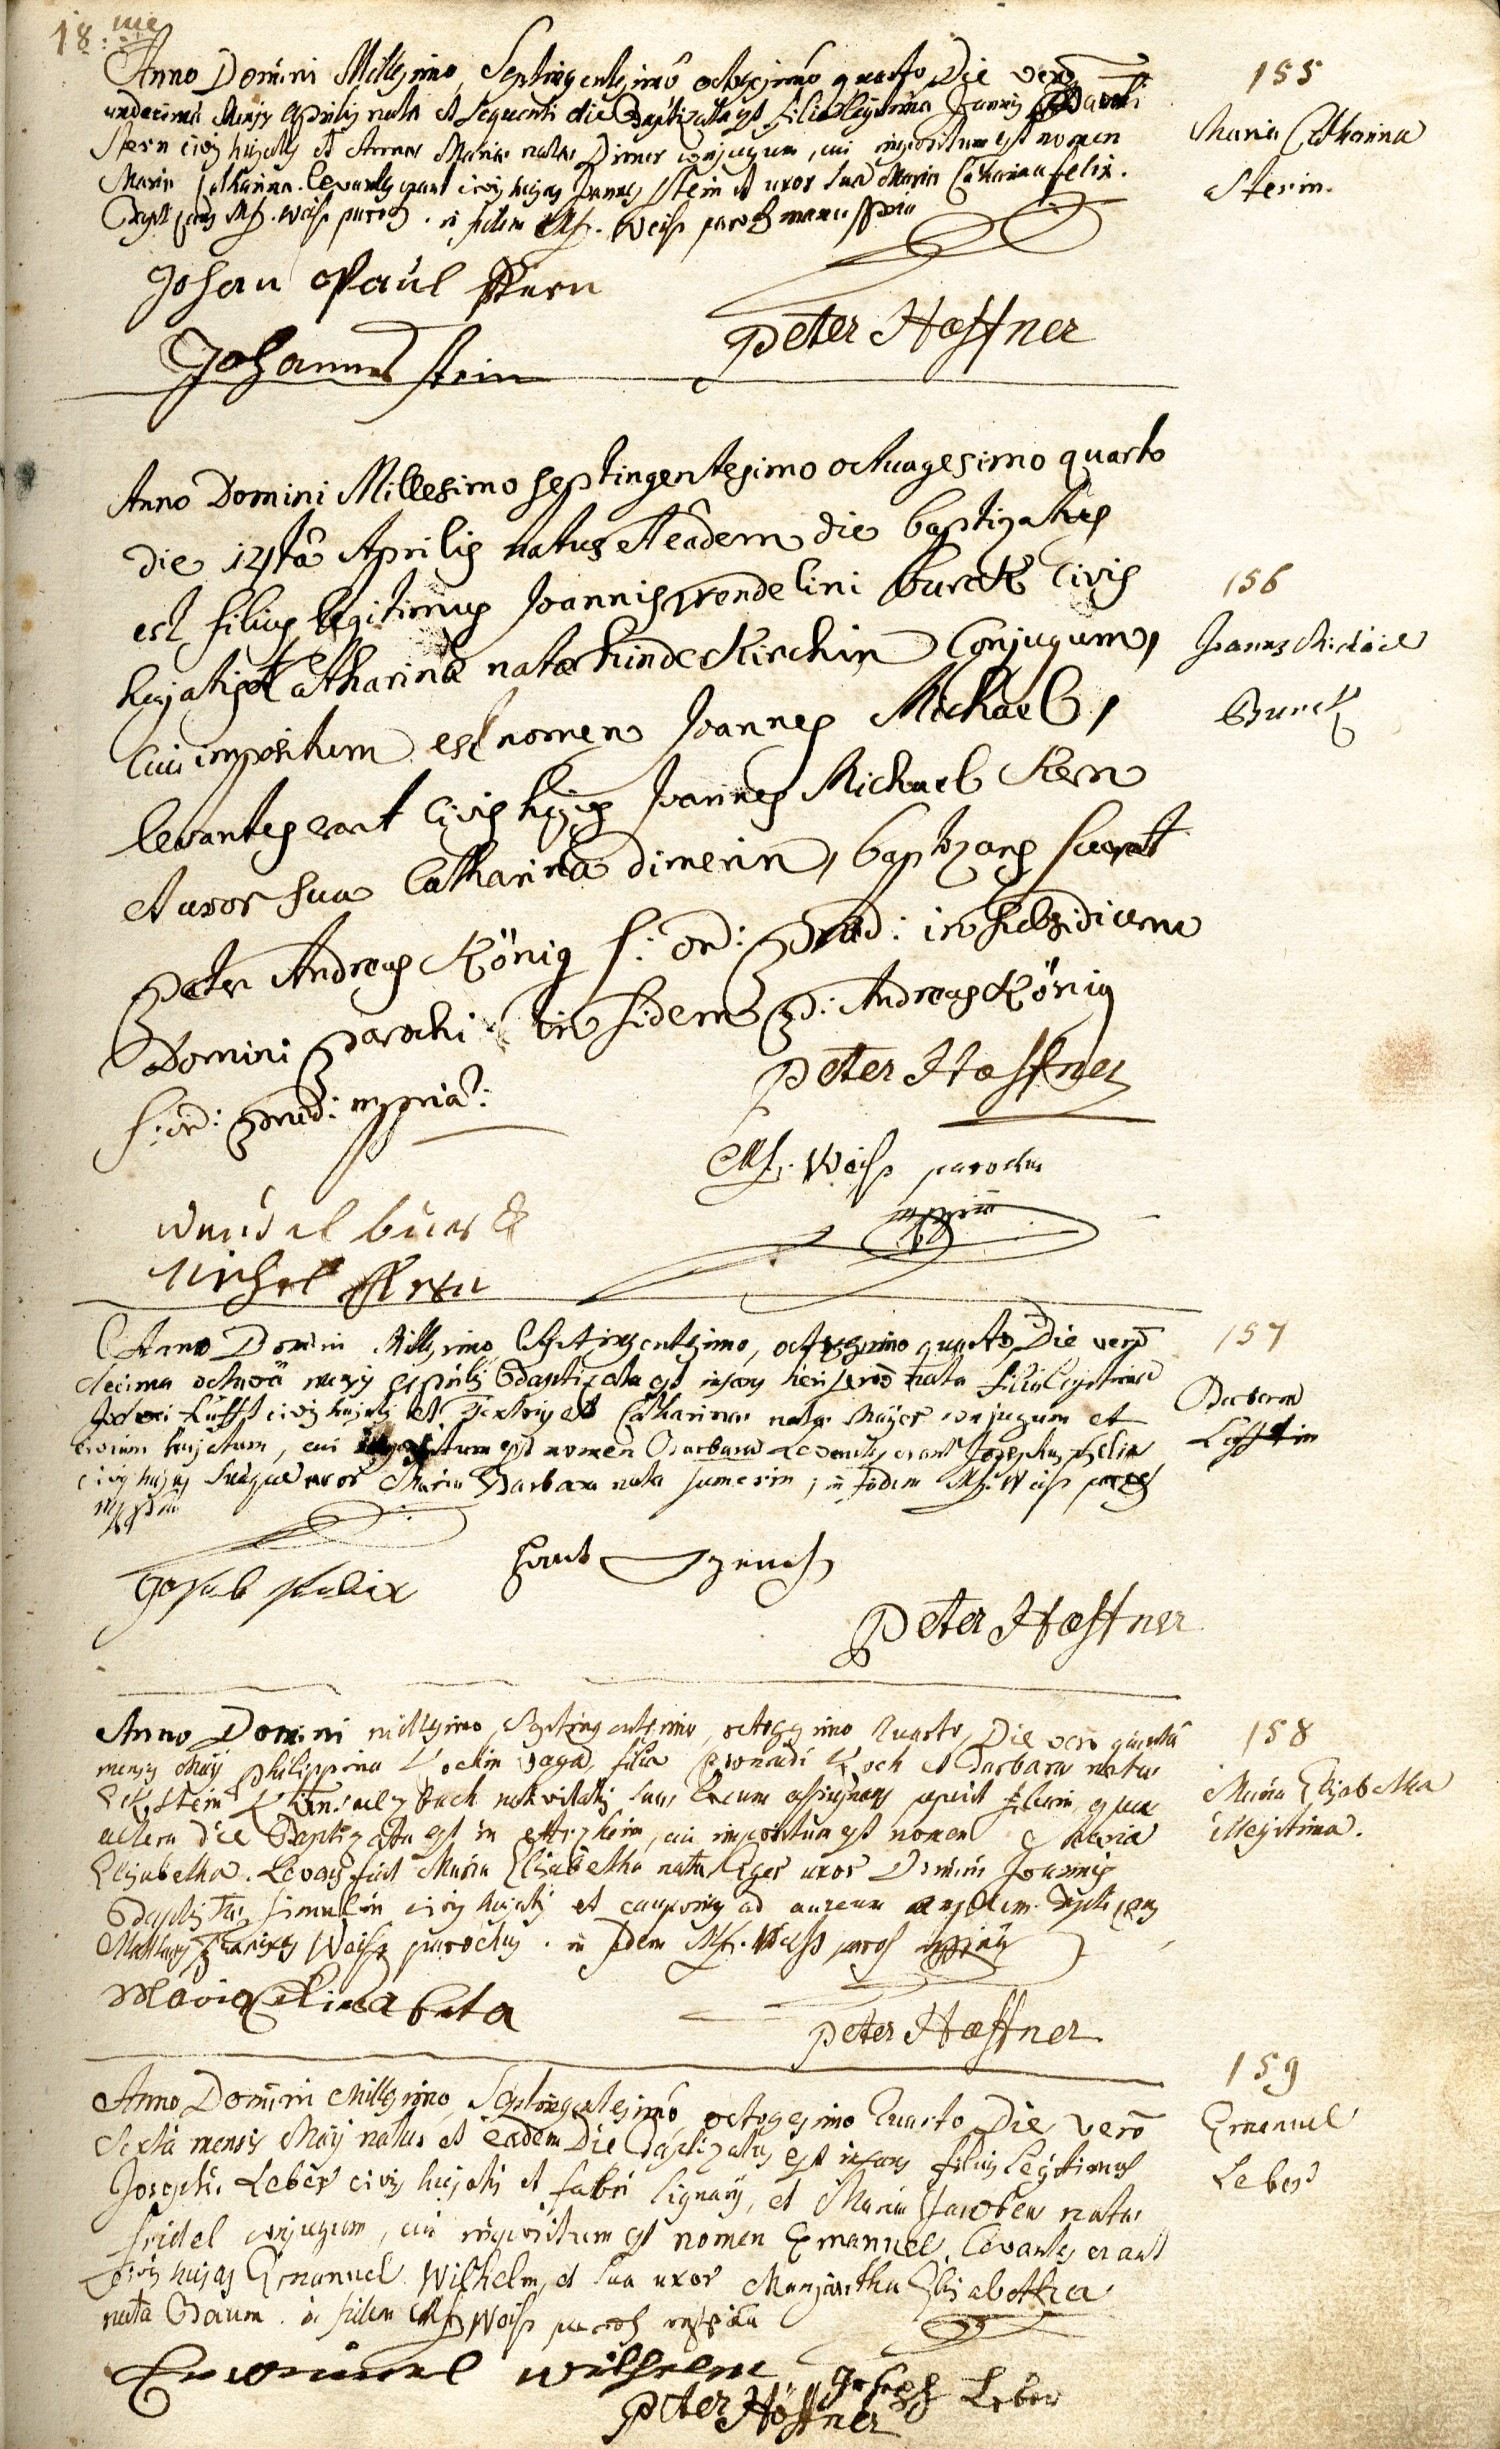 18: me
Anno Domini Millesimo, Septingentesimo octogesimo quarto, Die vero
undecima Mensis Aprilis nata et sequenti die Baptizata est filia legitima Joannis Pauli
Stern civis hujatis et Annae Mariae natae Dimer conjugum, cui impositum est nomen
Maria Catharina. levantes erant civis hujas Joannes Stein et uxor sua Maria Catharina felix.
Mf. Weiss paroch. in fidem Mf. Weiss paroch manu ppria
155
Maria Catharina
Sterin.
Johan Paul Stern
Peter Hoffner
Johannes stein
Anno Domini Millesimo septingentesimo octuagesimo quarto
die 14tâ Aprilis natus et eâdem die baptizatus
est filius legitimus Joannis wendelini burck civis
hujatis et Catharinae natae hindeKirchin Conjugum,
Cui impositum est nomen Joannes Michael,
levantes erant Civis hujus Joannes Michael Stern
et uxor sua Catharina dimerin, baptizans fuerat
Pater Andreas König s: ord: Praed: in subsidium
Domini Parochi in fidem P: Andreas König
s: ord: praed: mppria:
156
Joannes Michael
Burck
Peter Hoffner
Mf. Weiss parochus
mppriâ
wendel buerck
Michel Stern
Anno Domini Millesimo Septingentesimo, octogesimo quarto, Die vero
decima octava mensis Aprilis Baptizata est infans heri sero nata filia legitima
civis hujatis et Textoris et Catharinae natae Mayer conjugum et
civium hujatum, cui impositum est nomen Barbara Levantes erant Josephus Felix
civis hujas suaque uxor Maria Barbara nata sumerin; in fidem Mf. Weiss paroch
mppria
157
Barbara
Josep felix
Peter Hoffner
Anno Domini millesimo, Septingentesimo, octogesimo Quarto, Die vero quinta
mensis Maij Philippina Kochin vaga, filia Koch et Barbara natae
nativitatis suae locum assignans peperit filiam, quae
eadem die Baptizata est in, cui impositum est nomen Maria
Elisabetha. Levans fuit Maria Elisabetha nata Eger uxor Domini Joannis
Baptistae, civis hujatis et cauponis ad aureum angelum. Baptizans
Mathias Weiss parochus. in fidem Mf. Weiss paroch mppria
158
Maria Elisabetha
illegitima.
Maria Elisabeta
Peter Hoffner
Anno Domini Millesimo, Septingentesimo octogesimo Quarto, Die vero
Sexta mensis Maij natus et eadem Die Baptizatus est infans filius legitimus
Josephi Leber civis hujatis et fabri lignarij, et Maria Jacobea natae
fridel conjugum, cui impositum est nomen Emanuel. Levantes erant
civis hujas Emanuel Wilhelm, et sua uxor Margaretha Elisabetha
nata Baum. in fidem Mf Weiss paroch mppria
159
Emanuel
Leber
Emanuel Wilhelm
Joseph Leber
Peter Höffner